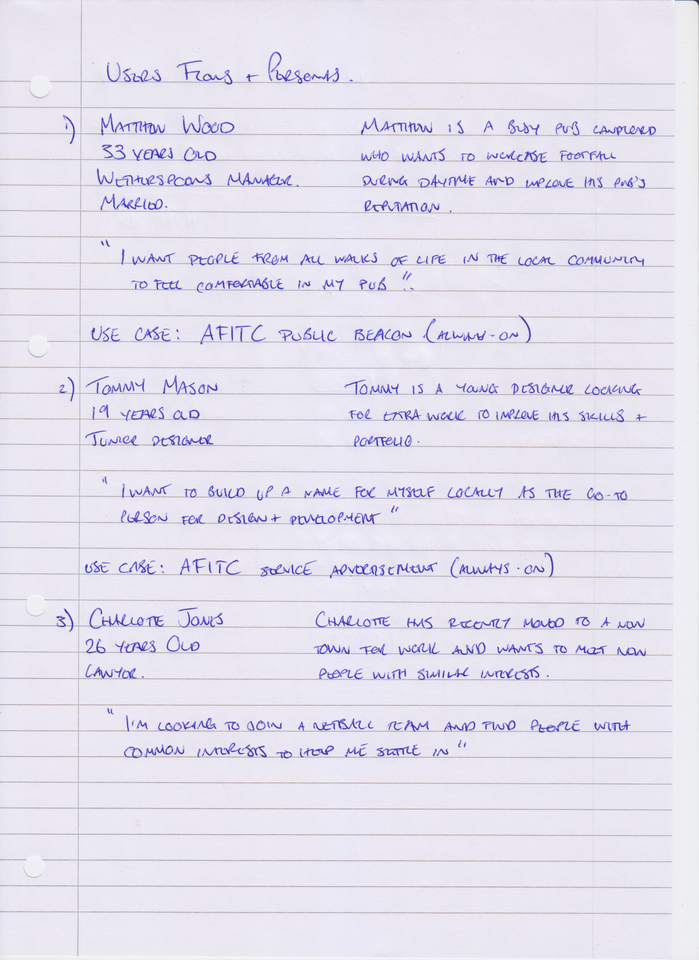 USERS FLOWS + PERSONAS.
1) MATTHEW WOOD
33 YEARS OLD
WETHERSPOONS MANAGER.
MARRIED.
MATTHEW IS A BUSY PUB LANDLORD
WHO WANTS TO INCREASE FOOTFALL
DURING DAYTIME AND IMPROVE HIS PUB'S
REPUTATION.
"I WANT PEOPLE FROM ALL WALKS OF LIFE IN THE LOCAL COMMUNITY
TO FEEL COMFORTABLE IN MY PUB".
USE CASE: AFITC PUBLIC BEACON (ALWAYS-ON)
2) TOMMY MASON
19 YEARS OLD
JUNIOR DESIGNER
TOMMY IS A YOUNG DESIGNER LOOKING
FOR EXTRA WORK TO IMPROVE HIS SKILLS +
PORTFOLIO.
"I WANT TO BUILD UP A NAME FOR MYSELF LOCALLY AS THE GO-TO
PERSON FOR DESIGN + DEVELOPMENT"
USE CASE: AFITC SERVICE ADVERTISEMENT (ALWAYS-ON)
3) CHARLOTTE JONES
26 YEARS OLD
LAWYER.
CHARLOTTE HAS RECENTLY MOVED TO A NEW
TOWN FOR WORK AND WANTS TO MEET NEW
PEOPLE WITH SIMILAR INTERESTS.
"I'M LOOKING TO JOIN A NETBALL TEAM AND FIND PEOPLE WITH
COMMON INTERESTS TO HELP ME SETTLE IN"